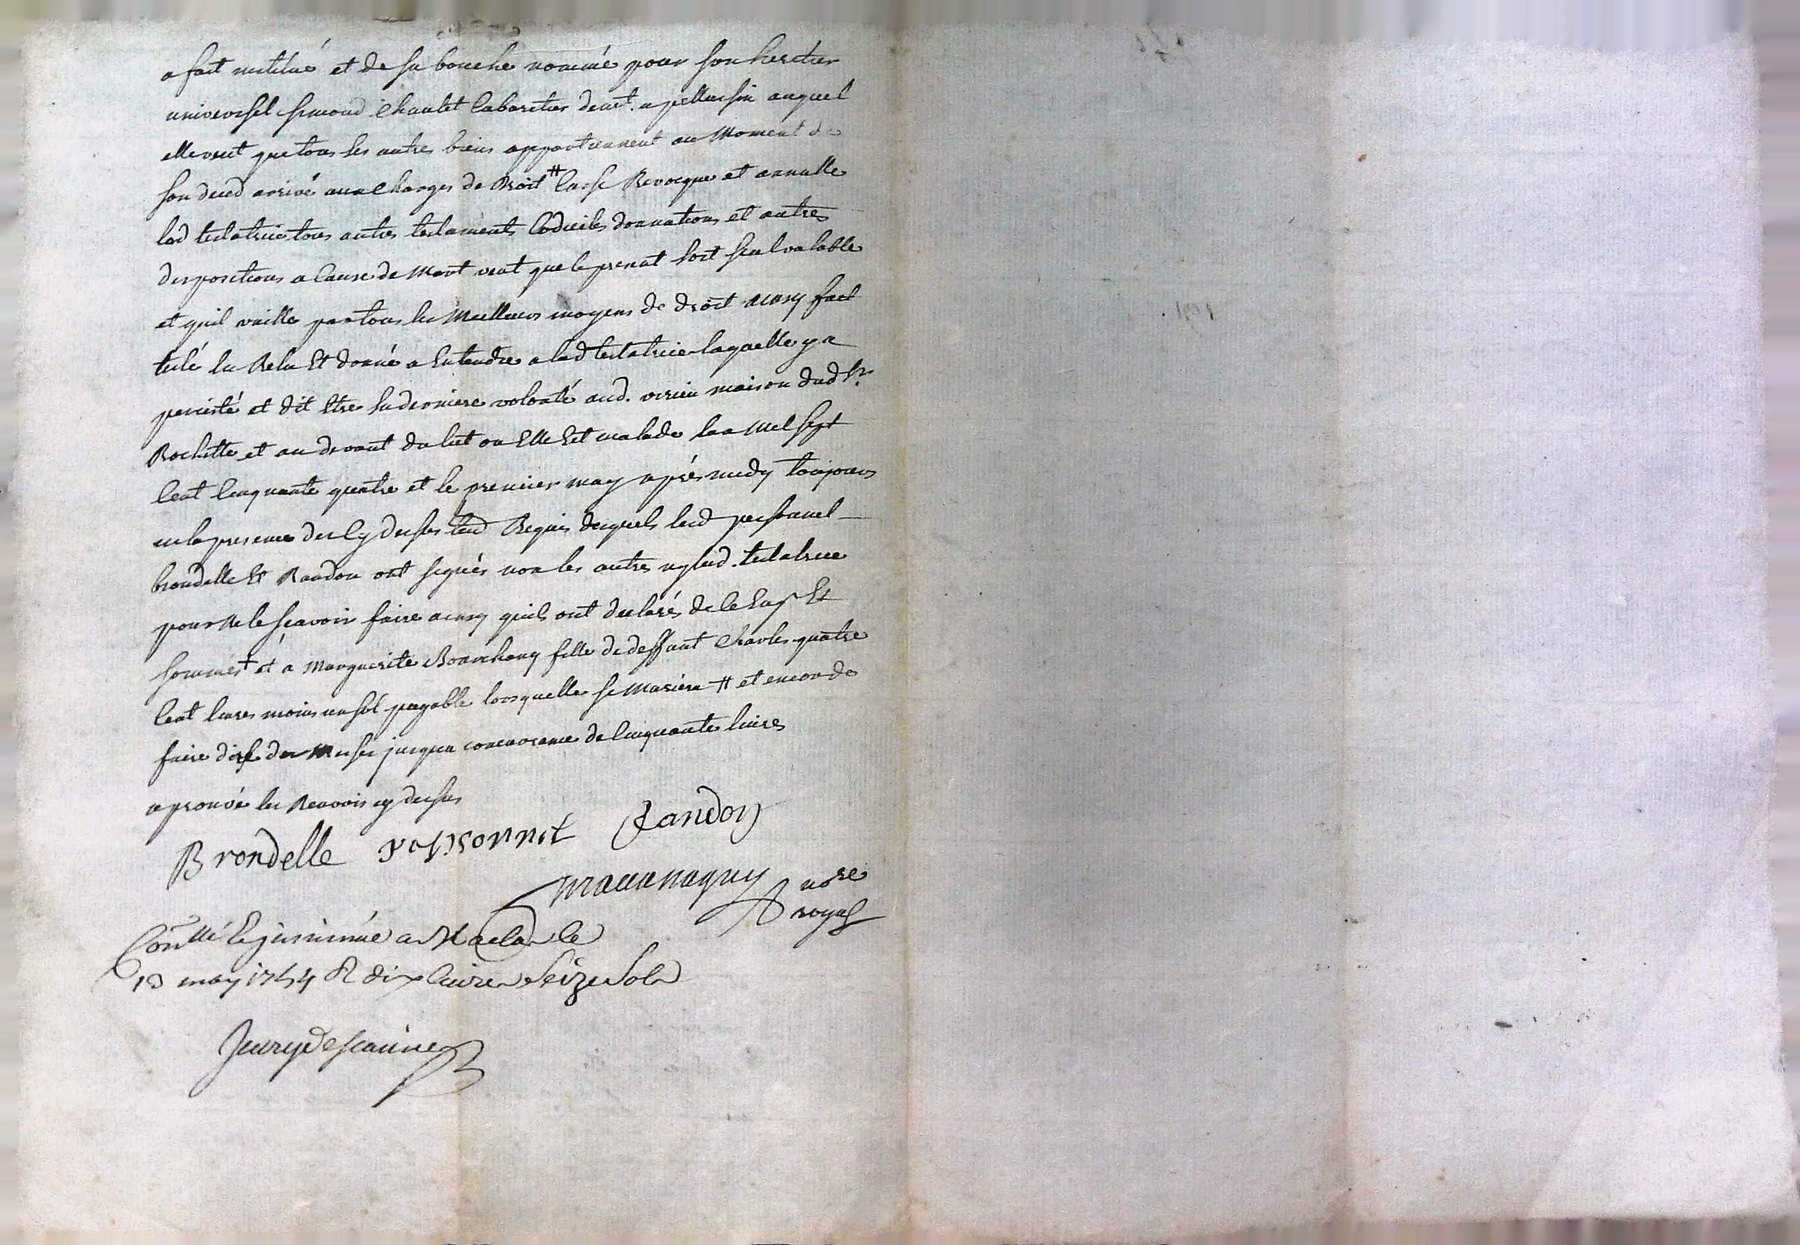 a fait institué et de sa bouche nommé pour son heritier
universel simond chaulet Cabaretier de net. a pellussin auquel
elle veut que tous ses autres biens appartiennent au Moment de
son deced arrivé aux Charges de Droit # Casse Revocque et annulle
lad testatrice tous autres testaments Codicils donnations et autres
dispositions a Cause de Mort veut que le presnt soit seul valable
et quil vaille par tous les Meilleurs moyens de droit ainsy fait
testé lu Relu Et donné a Entendre a lad testatrice laquelle y a
percisté et dit Etre sa derniere volonté aud. virieu maison dud Sr.
Rochette et au devant du lit ou Elle Est malade lan Mil sept
Cent Cinquante quatre et le premier may aprés midy toujours
en la presence des Cy dessus Requis desquels led
brondelle Et Randon ont signés non les autres ny lad. testatrice
pour Ne le sçavoir faire ainsy quils ont declarés de ce Enqs Et
sommés + et a Marguerite fille de deffunt Charles quatre
Cent livres moins un sol payable lorsquelle se Mariera # et encor de
faire dire des Messes jusqua concurance de Cinquante livres
aprouvé les Renvois cy dessus
Brondelle Randon
nore
royal
Conllé & jnsinüé a Maclas le
13 may 1754 R dix livres Seize Sols